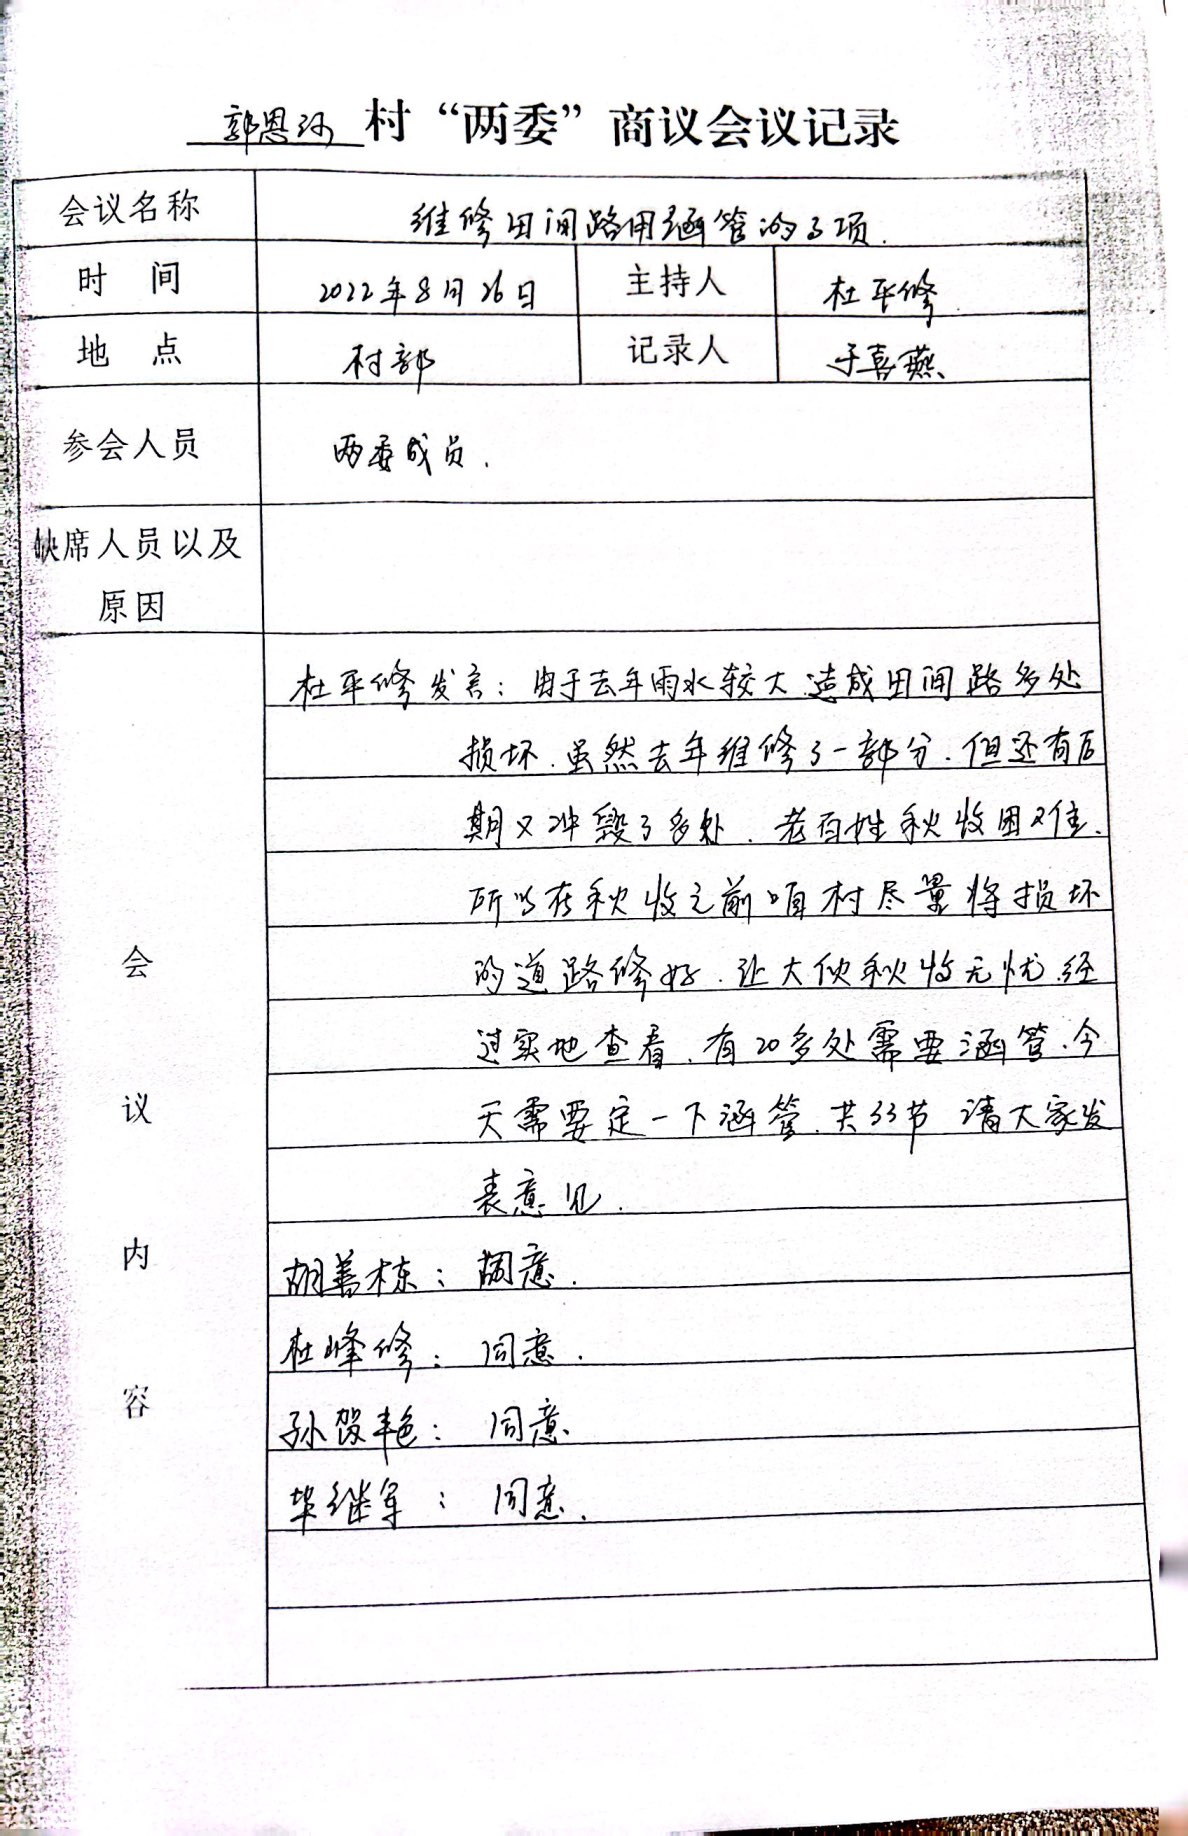 郭恩河村“两委”商议会议记录
会议名称 维修田间路用涵管的事项.
时 间 2022年8月26日 主持人 杜平修
地 点 村部 记录人 于喜燕
参会人员 两委成员.
缺席人员以及
原因
会议内容
杜平修发言：由于去年雨水较大.造成田间路多处
损坏.虽然去年维修了一部分.但还有后
期又冲毁了多处.老百姓秋收困难.
所以在秋收之前咱村尽量将损坏
的道路修好.让大伙秋收无忧.经
过实地查看.有20多处需要涵管.今
天需要定一下涵管.共33节 请大家发
表意见.
胡善栋：同意.
杜峰修：同意.
孙贺艳：同意.
毕继军：同意.